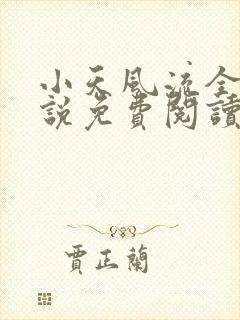 小天風流全
說免費閱讀
賈正蘭